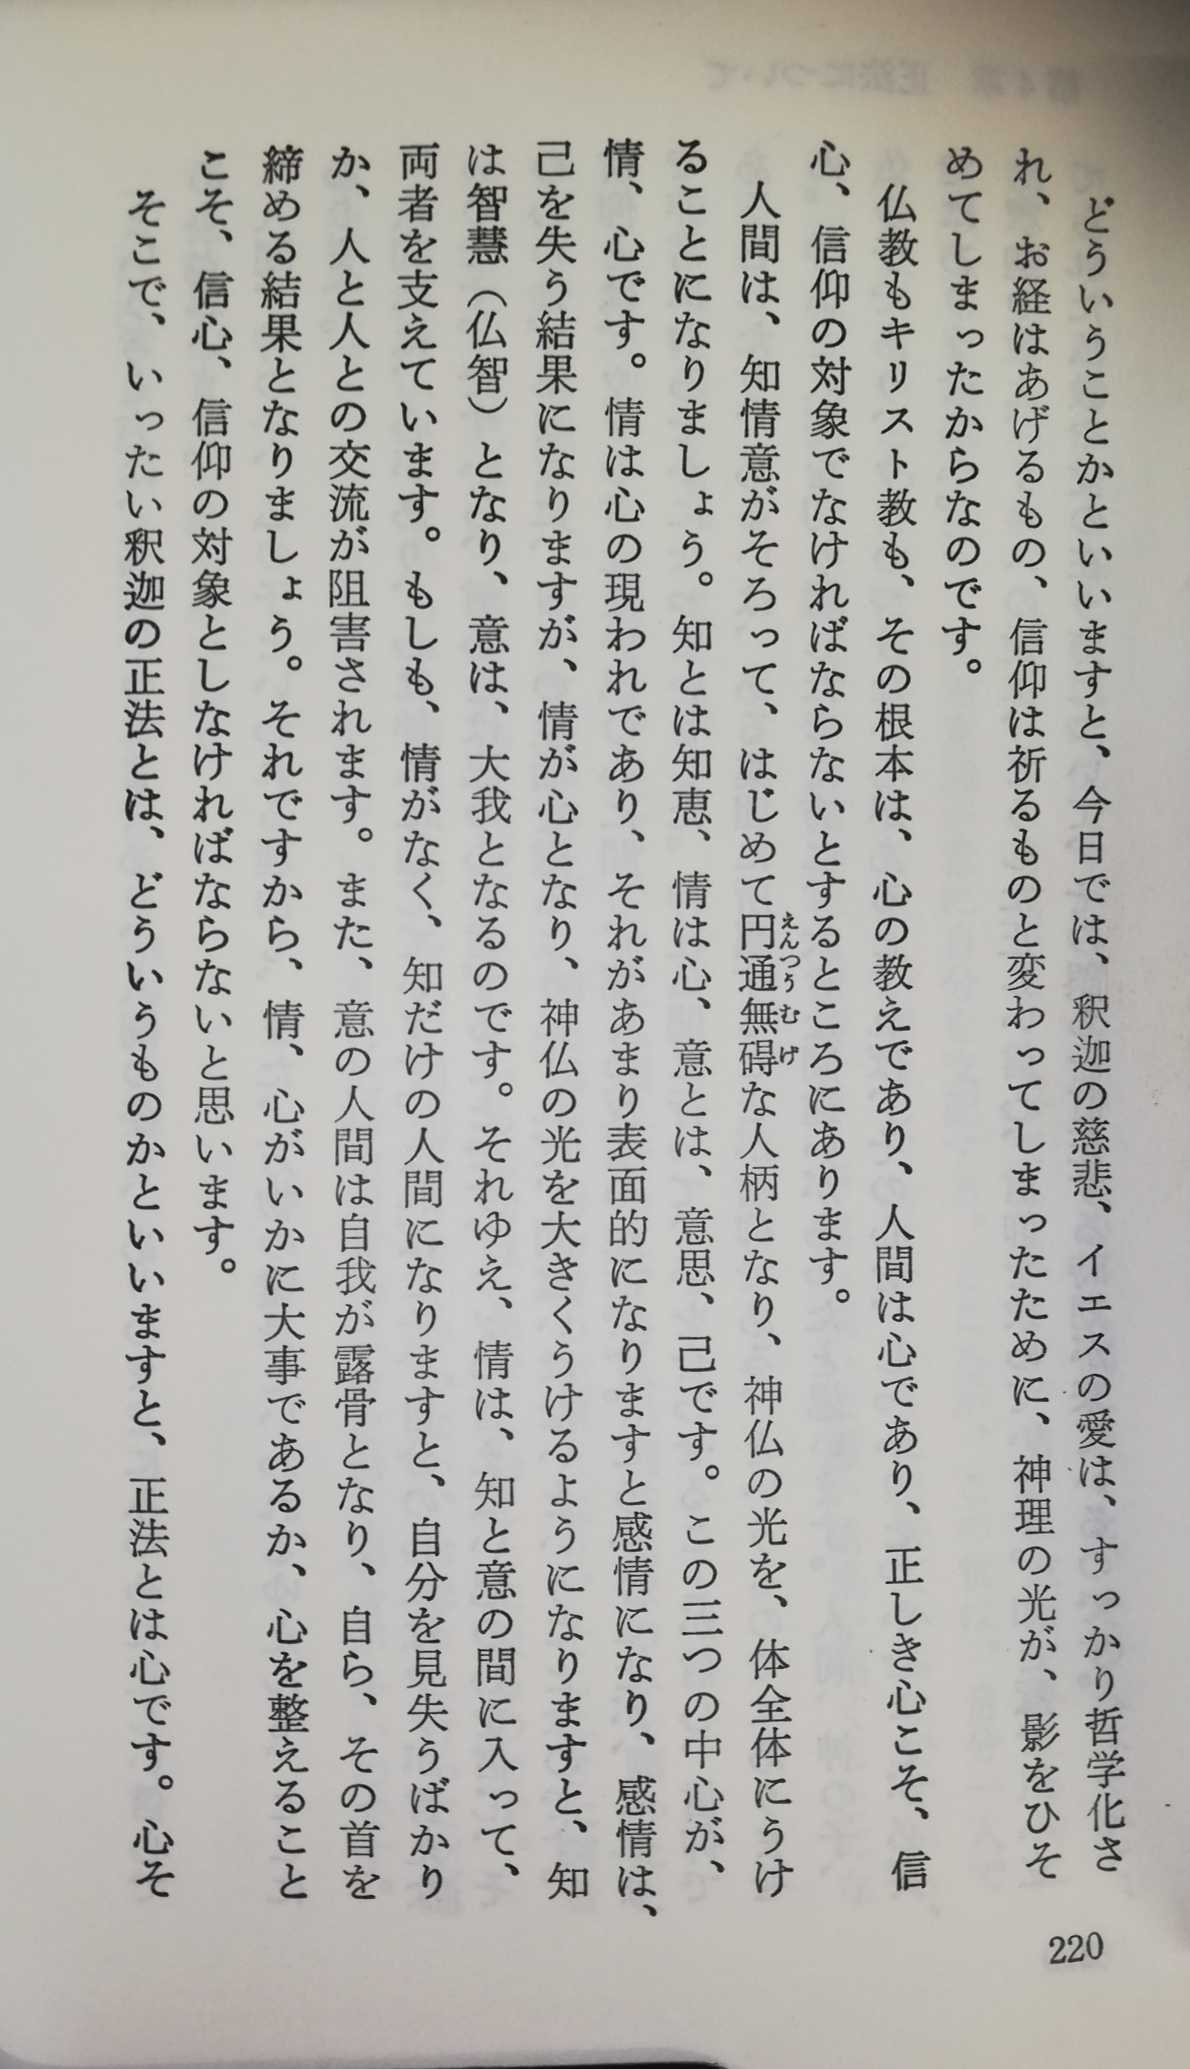 どういうことかといいますと、今日では、釈迦の慈悲、イエスの愛は、すっかり哲学化さ
れ、お経はあげるもの、信仰は祈るものと変わってしまったために、神理の光が、影をひそ
めてしまったからなのです。
仏教もキリスト教も、その根本は、心の教えであり、人間は心であり、正しき心こそ、信
心、信仰の対象でなければならないとするところにあります。
人間は、知情意がそろって、はじめて円通無碍な人柄となり、神仏の光を、体全体にうけ
えんつうむげ
ることになりましょう。知とは知恵、情は心、意とは、意思、己です。この三つの中心が、
情、心です。情は心の現われであり、それがあまり表面的になりますと感情になり、感情は、
己を失う結果になりますが、情が心となり、神仏の光を大きくうけるようになりますと、知
は智慧（仏智）となり、意は、大我となるのです。それゆえ、情は、知と意の間に入って、
両者を支えています。もしも、情がなく、知だけの人間になりますと、自分を見失うばかり
か、人と人との交流が阻害されます。また、意の人間は自我が露骨となり、自ら、その首を
締める結果となりましょう。それですから、情、心がいかに大事であるか、心を整えること
こそ、信心、信仰の対象としなければならないと思います。
そこで、いったい釈迦の正法とは、どういうものかといいますと、正法とは心です。心そ
220